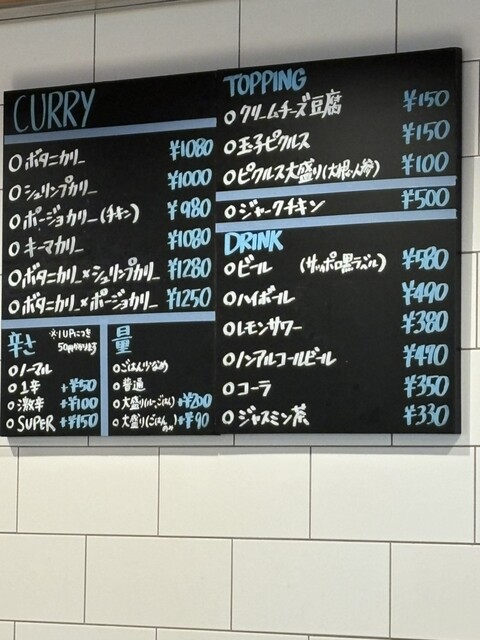 CURRY
○ボタニカリー ¥1080
○シュリンプカリー ¥1000
○ポージョカリー(チキン) ¥980
○キーマカリー ¥1080
○ボタニカリー×シュリンプカリー ¥1280
○ボタニカリー×ポージョカリー ¥1250
辛さ ※1UPにつき
50円かかります
○ノーマル
○1辛 +¥50
○激辛 +¥100
○SUPER +¥150
量
○ごはん少なめ
○普通
○大盛り(ルー、ごはん) +¥200
○大盛り(ごはんのみ) +¥90
TOPPING
○クリームチーズ豆腐 ¥150
○玉子ピクルス ¥150
○ピクルス大盛り(大根、人参) ¥100
○ジャークチキン ¥500
DRINK
○ビール (サッポロ黒ラベル) ¥580
○ハイボール ¥490
○レモンサワー ¥380
○ノンアルコールビール ¥490
○コーラ ¥350
○ジャスミン茶 ¥330